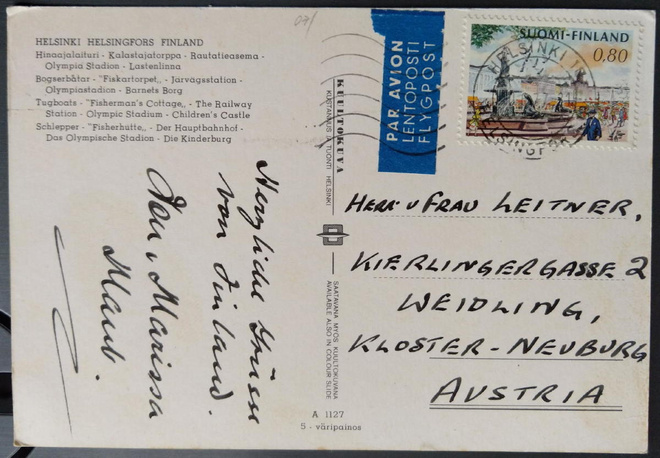 07/
HELSINKI HELSINGFORS FINLAND
Hinaajalaituri - Kalastajatorppa - Rautatieasema -
Olympia Stadion - Lastenlinna
Bogserbåtar - "Fiskartorpet„ - Järvägsstation -
Olympiastadion - Barnets Borg
Tugboats - "Fisherman's Cottage„ - The Railway
Station - Olympic Stadium - Children's Castle
Schlepper - "Fisherhütte„ - Der Hauptbahnhof -
Das Olympische Stadion - Die Kinderburg
Herzliche Grüsse
von Finland.
Marissa
KUULTOKUVA
KUSTANNUS JA TUONTI HELSINKI
SAATAVANA MYÖS KUULTOKUVANA
AVAILABLE ALSO IN COLOUR SLIDE
A 1127
5 - väripainos
PAR AVION
LENTOPOSTI
FLYGPOST
SUOMI-FINLAND
0,80
HELSINKI
HELSINGFORS
HERR u FRAU LEITNER,
KIERLINGERGASSE 2
WEIDLING,
KLOSTER-NEUBURG
AUSTRIA